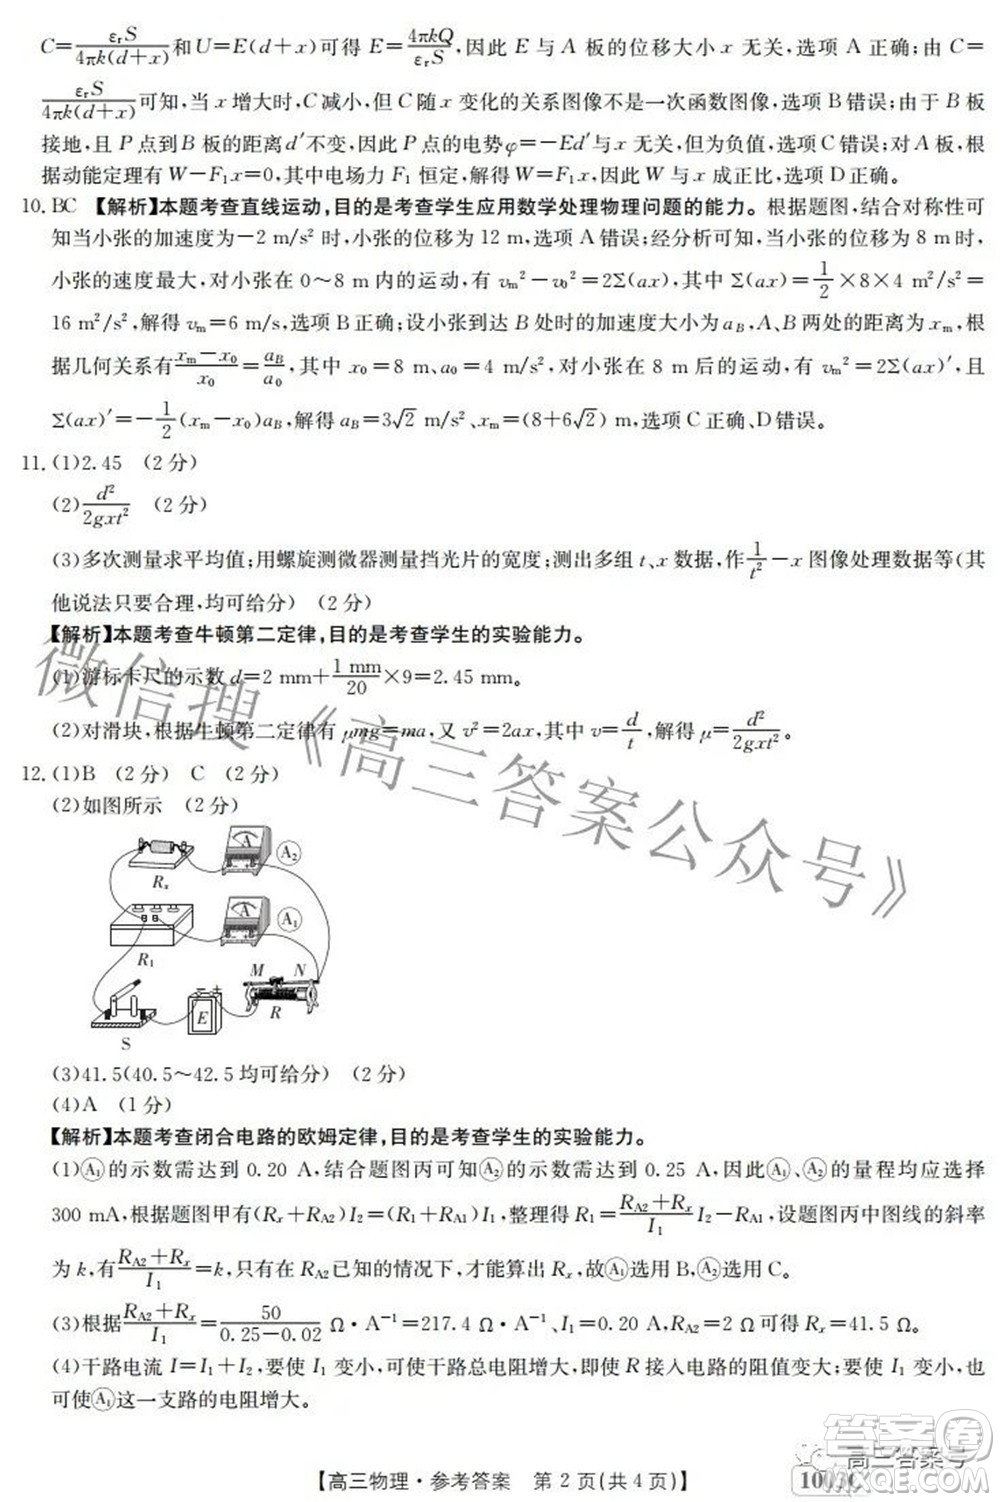 C=εrS/4πk(d+x)和U=E(d+x)可得 E=4πkQ/εrS,因此 E 与 A 板的位移大小 x 无关,选项 A 正确;由 C=
εrS/4πk(d+x)可知,当 x 增大时,C 减小,但 C 随 x 变化的关系图像不是一次函数图像,选项 B 错误;由于 B 板
接地,且 P 点到 B 板的距离 d′不变,因此 P 点的电势 φ=-Ed′与 x 无关,选项 C 错误;根
据动能定理有 W-F₁x=0,其中电场力 F₁ 恒定,结果有 W=F₁x,因此 W 与 x 成正比,选项 D 正确。
10. BC 【解析】本题考查直线运动,目的是考查学生应用数学处理物理问题的能力。根据题图,结合对称性可
知当小张的加速度为-2 m/s² 时,小张的位移为 12 m,选项 A 错误;经分析可知,当小张的位移为 8 m 时,
小张的速度最大,对小张在 0～8 m 内的运动,有 vm²-v0²=2Σ(ax),其中 Σ(ax)=1/2×8×4 m²/s²=
16 m²/s²,解得 vm=6 m/s,选项 B 正确;设小张到达 B 处时的加速度大小为 aB,A、B 处的距离为 xm,根
据几何关系有(xm-x0)/x0=aB/a0,其中 x0=8 m、a0=4 m/s²,对小张在 8 m 后的运动,有 vm²=2Σ(ax)′,且
Σ(ax)′=-1/2(xm-x0)aB,解得 aB=3√2 m/s²、xm=(8+6√2) m,选项 C 正确、D 错误。
11. (1)2.45 (2 分)
(2)d²/2gxt² (2 分)
(3)多次测量求平均值;用螺旋测微器测量挡光片的宽度;测出多组 t、x 数据,作1/t²-x 图像处理数据等(其
他说法只要合理,均可给分) (2 分)
【解析】本题考查牛顿第二定律,目的是考查学生的实验能力。
(1)游标卡尺的示数 d=2 mm+1 mm/20×9=2.45 mm。
(2)对滑块,根据牛顿第二定律有 μmg=ma,又 v²=2ax,其中 v=d/t,解得 μ=d²/2gxt²。
12. (1)B (2 分) C (2 分)
(2)如图所示 (2 分)
A A₂
Rx
A A₁
R₁ M N
E R
S
(3)41.5(40.5～42.5 均可给分) (2 分)
(4)A (1 分)
【解析】本题考查闭合电路的欧姆定律,目的是考查学生的实验能力。
(1)A₁的示数需达到 0.20 A,结合题图丙可知A₂的示数需达到 0.25 A,因此A₁、A₂的量程均应选择
300 mA,根据题图甲有(Rx+RA2)I₂=(R₁+RA1)I₁,整理得 R₁=(RA2+Rx)/I₁ I₂-RA1,设题图丙中图线的斜率
为 k,有(RA2+Rx)/I₁=k,只有在 RA2已知的情况下,才能算出 Rx,故A₁选用 B,A₂选用 C。
(3)根据(RA2+Rx)/I₁=50/(0.25-0.02) Ω·A⁻¹=217.4 Ω·A⁻¹、I₁=0.20 A、RA2=2 Ω可得 Rx=41.5 Ω。
(4)干路电流 I=I₁+I₂,要使 I₁ 变小,可使干路总电阻增大,即使 R 接入电路的阻值变大;要使 I₁ 变小,也
可使A₁这一支路的电阻增大。
【高三物理·参考答案 第 2 页(共 4 页)】
1003C
微信搜《高三答案公众号》
高三答案号
答案圈
MXQE.COM